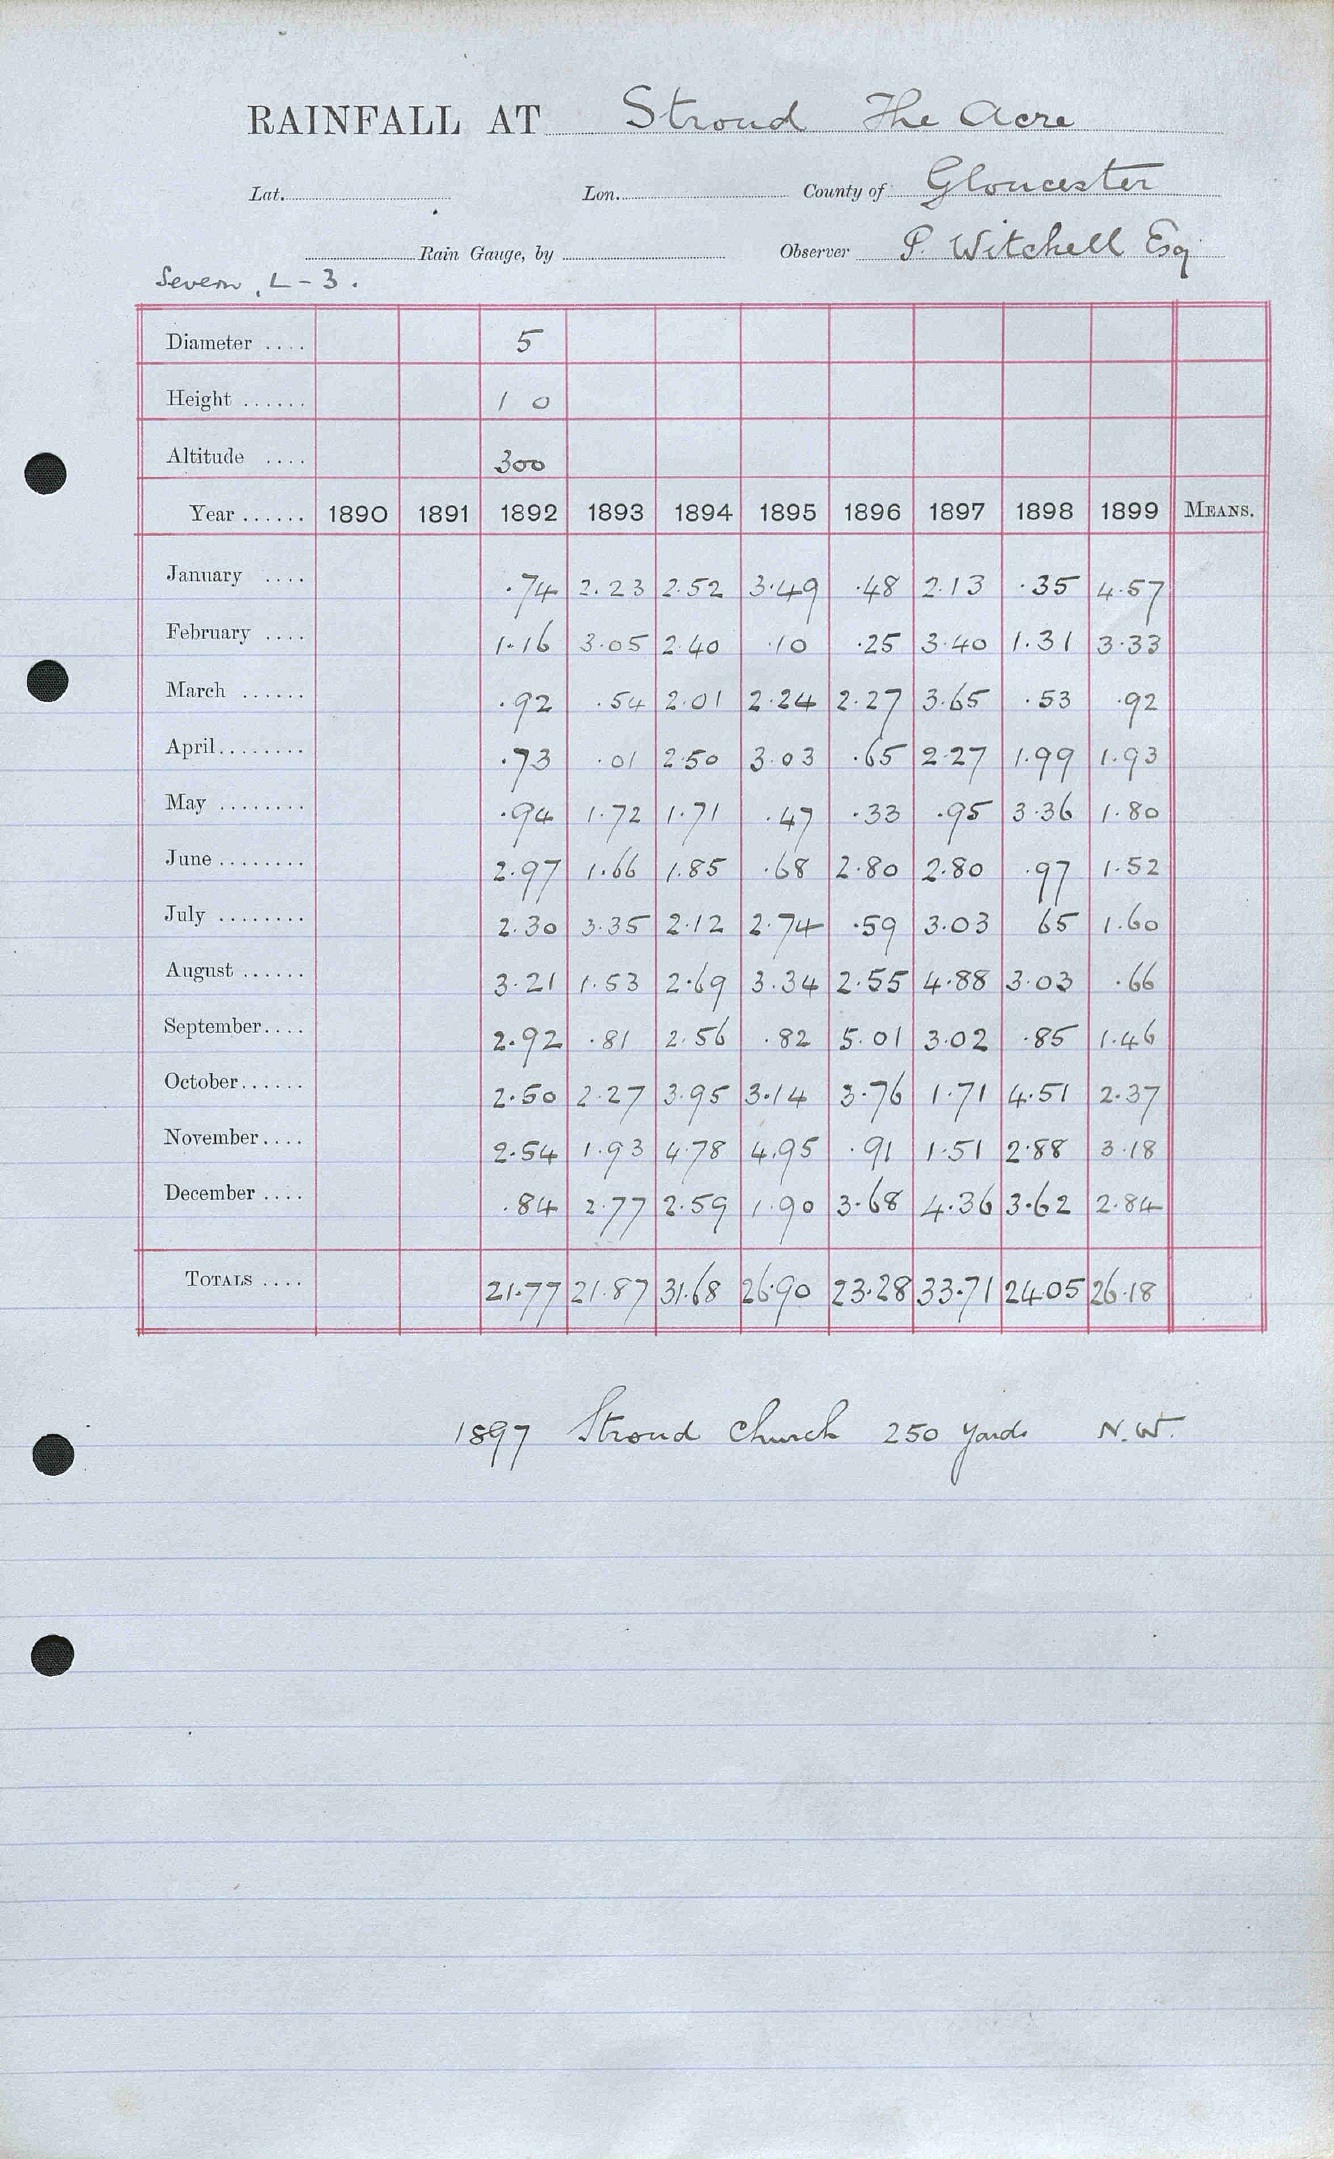 RAINFALL AT Stroud The Acre
Lat. Lon. County of Gloucester
Rain Gauge, by Observer P. Witchell Esq
Severn, L-3.
Diameter .... 5
Height ...... 1 0
Altitude .... 300
Year ...... 1890 1891 1892 1893 1894 1895 1896 1897 1898 1899 MEANS.
January .... .74 2.23 2.52 3.49 .48 2.13 .35 4.57
February .... 1.16 3.05 2.40 .10 .25 3.40 1.31 3.33
March ...... .92 .54 2.01 2.24 2.27 3.65 .53 .92
April ........ .73 .01 2.50 3.03 .65 2.27 1.99 1.93
May ........ .94 1.72 1.71 .47 .33 .95 3.36 1.80
June ........ 2.97 1.66 1.85 .68 2.80 2.80 .97 1.52
July ........ 2.30 3.35 2.12 2.74 .59 3.03 65 1.60
August ...... 3.21 1.53 2.69 3.34 2.55 4.88 3.03 .66
September .... 2.92 .81 2.56 .82 5.01 3.02 .85 1.46
October ...... 2.50 2.27 3.95 3.14 3.76 1.71 4.51 2.37
November .... 2.54 1.93 4.78 4.95 .91 1.51 2.88 3.18
December .... .84 2.77 2.59 1.90 3.68 4.36 3.62 2.84
TOTALS .... 21.77 21.87 31.68 26.90 23.28 33.71 24.05 26.18
1897 Stroud Church 250 yards N.W.